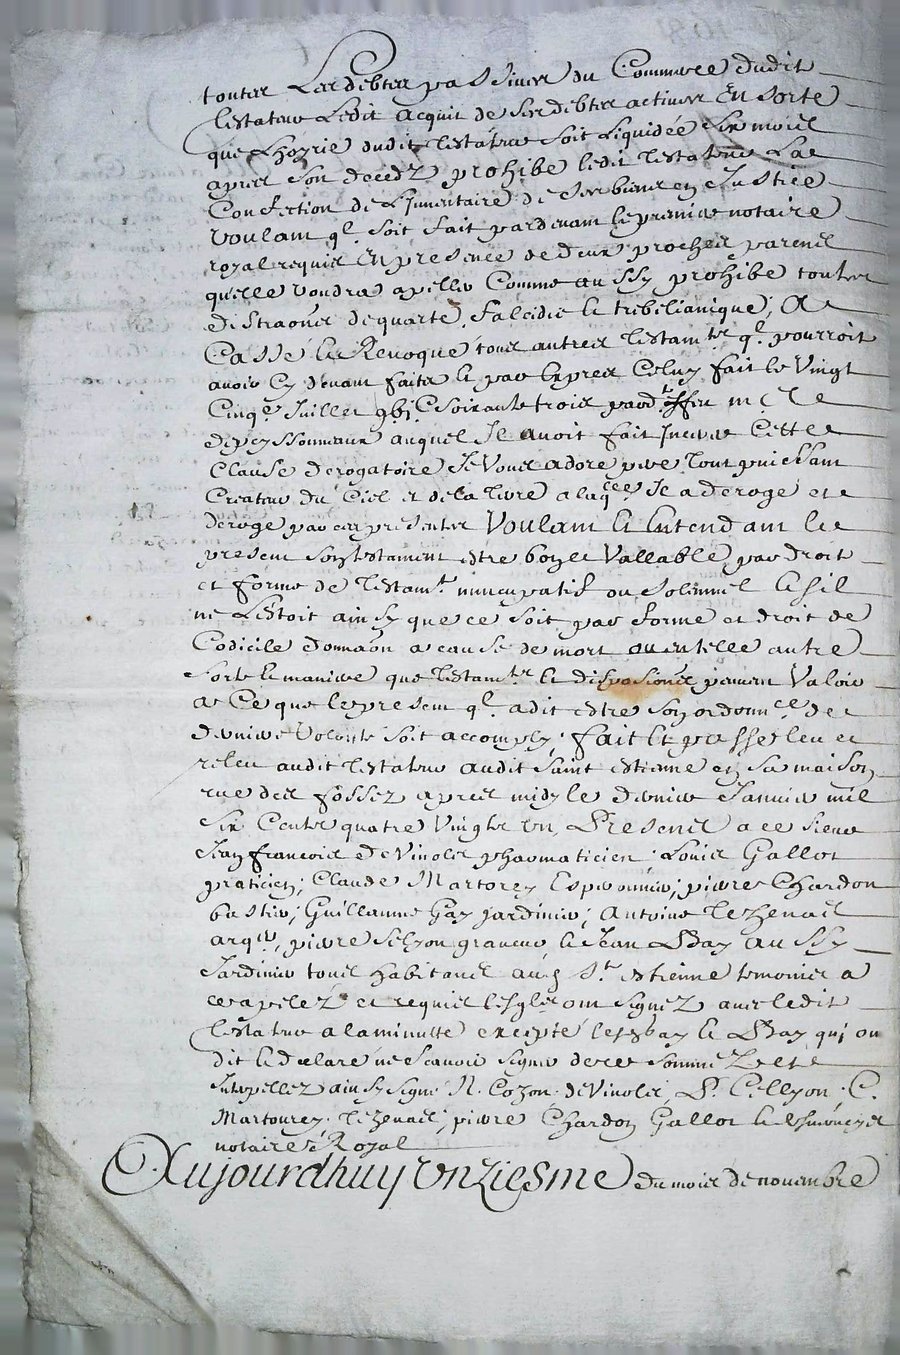 touttes Les debtes passives du Commerce dudit
testateur Ledit acquit de ses debtes actives En sorte
que Lhoyrie dudit testateur soit Liquidée six mois
apres son decedz prohibe ledit testateur La
Confection de Linventaire de ses biens en Justice
Voulant ql. soit fait pardevant le premier notaire
royal requis En presence de deux proches parents
quelle voudra apeller Comme aussy prohibe touttes
distraõns de quarte falcidie et trebelianique, A
Cassé et Revoque tous autres testamts ql. pourroit
avoir Cy devant faits et par Expres Celuy fait le Vingt
Cinqe Juillet soixante trois pard. me
deyssonneaux auquel Il avoit fait Inserer Cette
Clause derogatoire Je Vous adore pere tout puissant
Createur du Ciel et de la terre a laqlle Il a derogé et
deroge par ces presentes Voulant et Entendant le
present son testament estre bon et Vallable par droit
et forme de testamt. nuncupatif ou solemnel et sil
ne Lestoit ainsy que ce soit par forme et droit de
Codicile donnaõn a cause de mort ou en telle autre
sorte et maniere que testamts et dispositiones peuvent Valoir
a Ce que le present ql. a dit estre son ordonnce. de
derniere Volonte soit accomply, fait et passé leu et
releu audit testateur audit saint estienne en sa maison
rue des fossez apres midy le dernier Janvier mil
six Cents quatre Vingts un, Presents a ce sieur
Jean francois de Vinoles pharmaticien, Louis Gallot
praticien, Claude Martorey Esperonnier, pierre Chardon
bastier, Guillaume Gay jardinier, Antoine Tezenas
arqer, pierre Selyon graveur et Jean Bay aussy
Jardinier tous habitants aud. St. estienne temoins a
ce apelez et requis Lesqls ont signez avec ledit
testateur a la minutte excepté lesd. Gay et Bay qui ont
dit et declaré ne scavoir signer de ce sommez et
Interpellez ainsy signé N. Cozon, deVinoles, P. Cellyon, C.
Martourey, Tezenas, pierre Chardon Gallot et
notaire Royal
Aujourdhuy Unziesme du mois de novembre